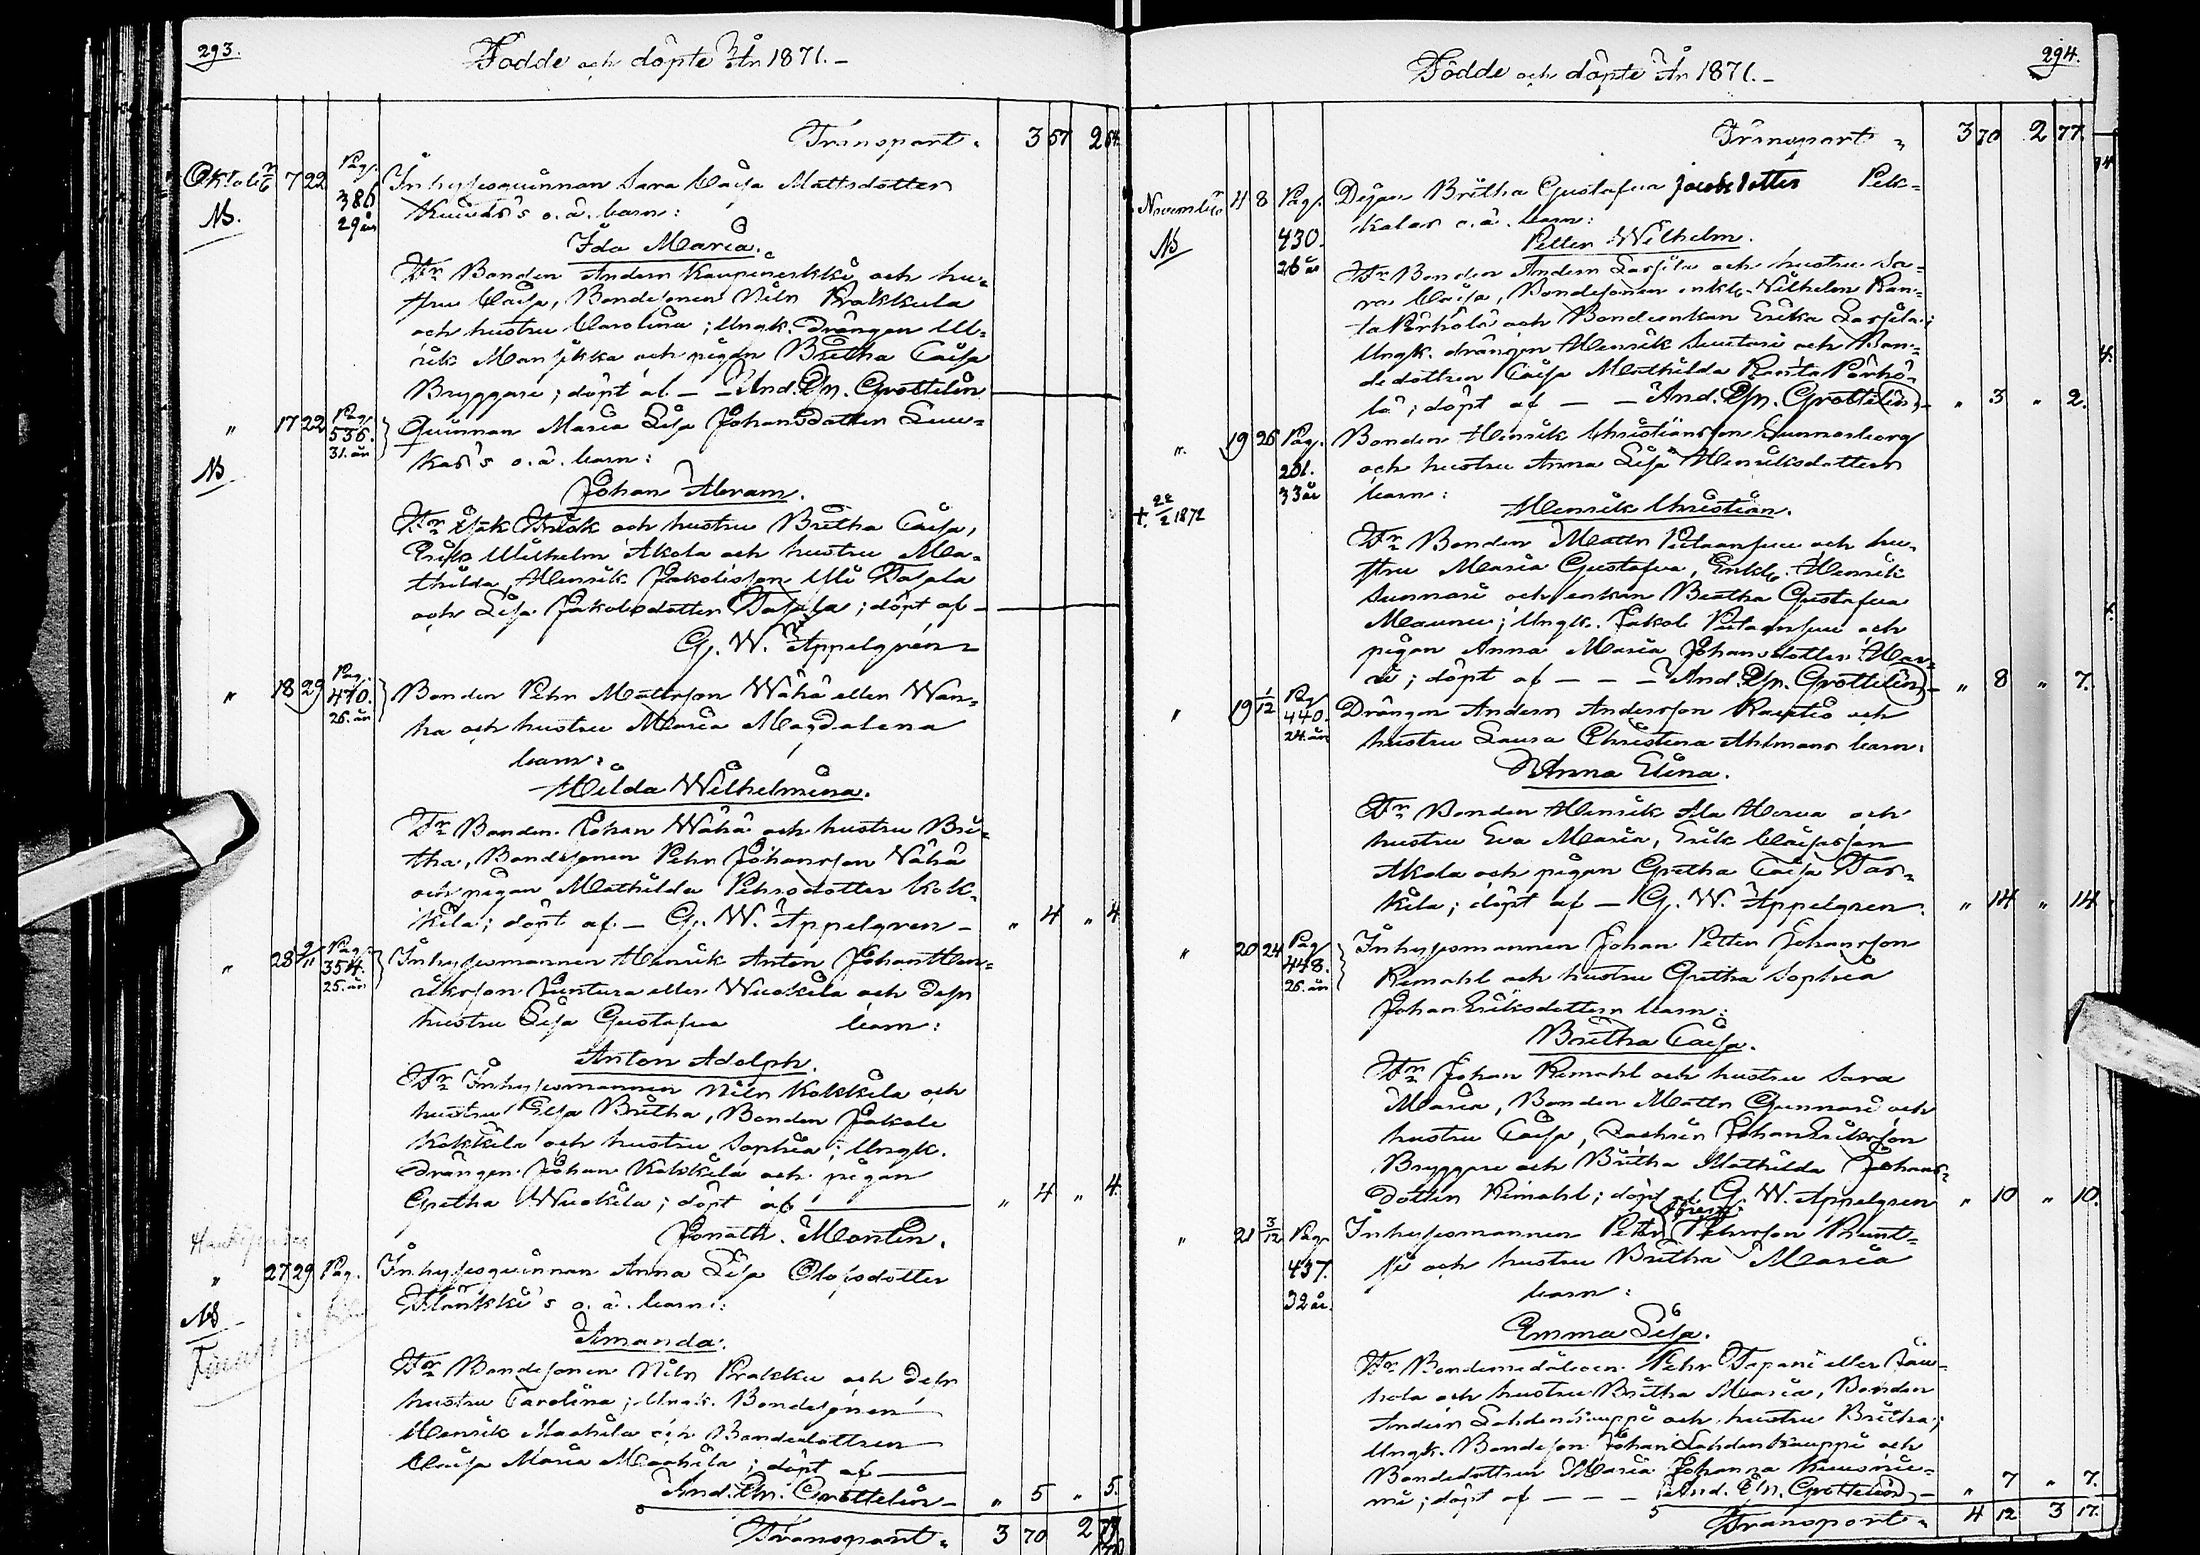 293.
Födde och döpte År 1871.-
Transport. 3 57 2 64.
Oktob. 7 22 Pag. 386 29 år Inhysesqvinnan Sara Caisa Mattsdotter
NB. o. ä. barn:
Ida Maria.
Fr Bonden Anders och hu-
stru Caisa, Bondesonen Nils Krakkula
och hustru Carolina; Ungk. drängen Ul-
rik Mansikka och pigan Britha Caisa
Bryggare; döpt af - And. Grottelin
" 17 22 Pag. 536. 31. år Qvinnan Maria Lisa Johansdotter Luu-
NB kas's o. ä. barn:
Johan Abram.
Fr Isak och hustru Britha Caisa,
Erik Wilhelm Akola och hustru Ma-
thilda, Henrik Jakobsson Uli
och Lisa Jakobsdotter ; döpt af -
G. W. Appelgren
" 18 29 Pag. 470. 26. år Bonden Pehr Mattsson Wähä eller Wan-
ha och hustru Maria Magdalena
barn:
Hilda Wilhelmina.
Fr Bonden Johan Wähä och hustru Bri-
tha, Bondesonen Pehr Johansson Wähä
och pigan Mathilda Pehrsdotter Kok-
kila; döpt af. - G. W. Appelgren - " 4 " 4
" 28 9/11 Pag. 354. 25. år Inhysesmannen Henrik Anton Johan Hen-
riksson Juntura eller Wuokila och dess
hustru Lisa Gustafva barn:
Anton Adolph.
Fr Inhysesmannen Nils Kokkila och
hustru Elsa Britha, Bonden Jakob
Kokkila och hustru Sophia; Ungk.
drängen Johan Kokkila och pigan
Gretha Wuokila; döpt af " 4 " 4.
Jonath. Montin.
" 27 29 Pag. Inhysesqvinnan Anna Lisa Olofsdotter
NB o. ä. barn:
Amanda.
Fr Bondesonen Nils Krakku och dess
hustru Carolina; Ungk. Bondesonen
Henrik Maahila och Bondedottren
Caisa Maria Maahila; döpt af
And. Grottelin - " 5 " 5.
Transport. 3 70 2 77
294.
Födde och döpte År 1871.-
Transport " 3 70 2 77.
November 4 8 Pag. 430. 26 år Dejan Britha Gustafva Jacobsdotter Pek-
NB kalas o. ä. barn:
Petter Wilhelm.
Fr Bonden Anders Lassila och hustru Sa-
ra Caisa, Bondesonen enkl. Wilhelm Ran-
ta Pörhölä och Bondeenkan Erika Lassila;
Ungk. drängen Henrik och Bon-
dedottren Caisa Mathilda Ranta Pörhö-
lä; döpt af - - And. Grottelin - " 3 " 2.
". 19 26 Pag. 201. 33 år Bonden Henrik Christiansson Sunnarborg
och hustru Anna Lisa Henriksdotters
barn:
† 28/2 1872 Henrik Christian.
Fr Bonden Matts och hu-
stru Maria Gustafva, Enkl. Henrik
Sunnari och enkan Britha Gustafva
Maunu; Ungk. Jakob och
pigan Anna Maria Johansdotter
; döpt af - - - And. Grottelin - " 8 " 7.
" 19 1/12 Pag 440. 24. år Drängen Anders Andersson Rautio och
hustru Laura Christina Ahlmans barn:
Anna Elina.
Fr Bonden Henrik Ala Herva och
hustru Eva Maria, Erik Caisasson
Akola och pigan Gretha Caisa Tas-
kila; döpt af - G. W. Appelgren. " 14 " 14
" 20 24 Pag 448. 26. år Inhysesmannen Johan Petter Johansson
Kemahl och hustru Gretha Sophia
Johan Eriksdotters barn:
Britha Caisa.
Fr Johan Kemahl och hustru Sara
Maria, Bonden Matts Gunnari och
hustru Caisa, Johan Eriksson
Bryggare och Britha Mathilda Johans-
dotter Kemahl; döpt af G. W. Appelgren " 10 " 10.
" 21 3/12 Pag. 437. 32 år. Inhysesmannen Petter Pehrsson
och hustru Britha Maria
barn:
Emma Lisa.
Fr Pehr Tapani eller
och hustru Britha Maria, Bonden
Anders Lahdenkauppi och hustru Britha;
Ungk. Bondeson Johan Lahdenkauppi och
Bondedottren Maria Johanna Kuusinie-
mi; döpt af - - - And. Grottelin - " 7 " 7.
Transport. 4 12 3 17.